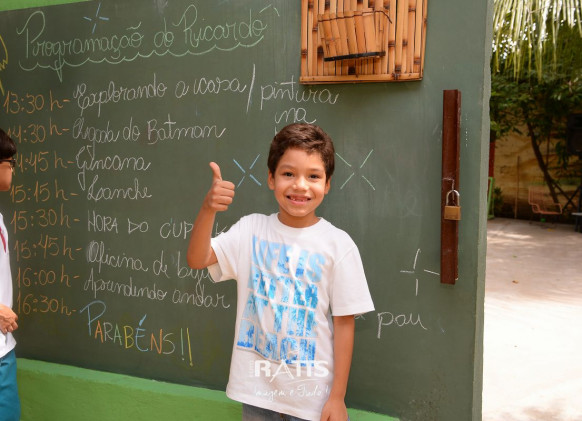 Programação do Ricardo
13:30h - Explorando a casa / pintura na
14:30h - Chegada do Batman
14:45h - Gincana
15:15h - Lanche
15:30h - HORA DO CUP
15:45h - Oficina de
16:00h - Aprendendo andar
16:30h -
pau
PARABÉNS!!
LIFE IS
BEACH
RATTS